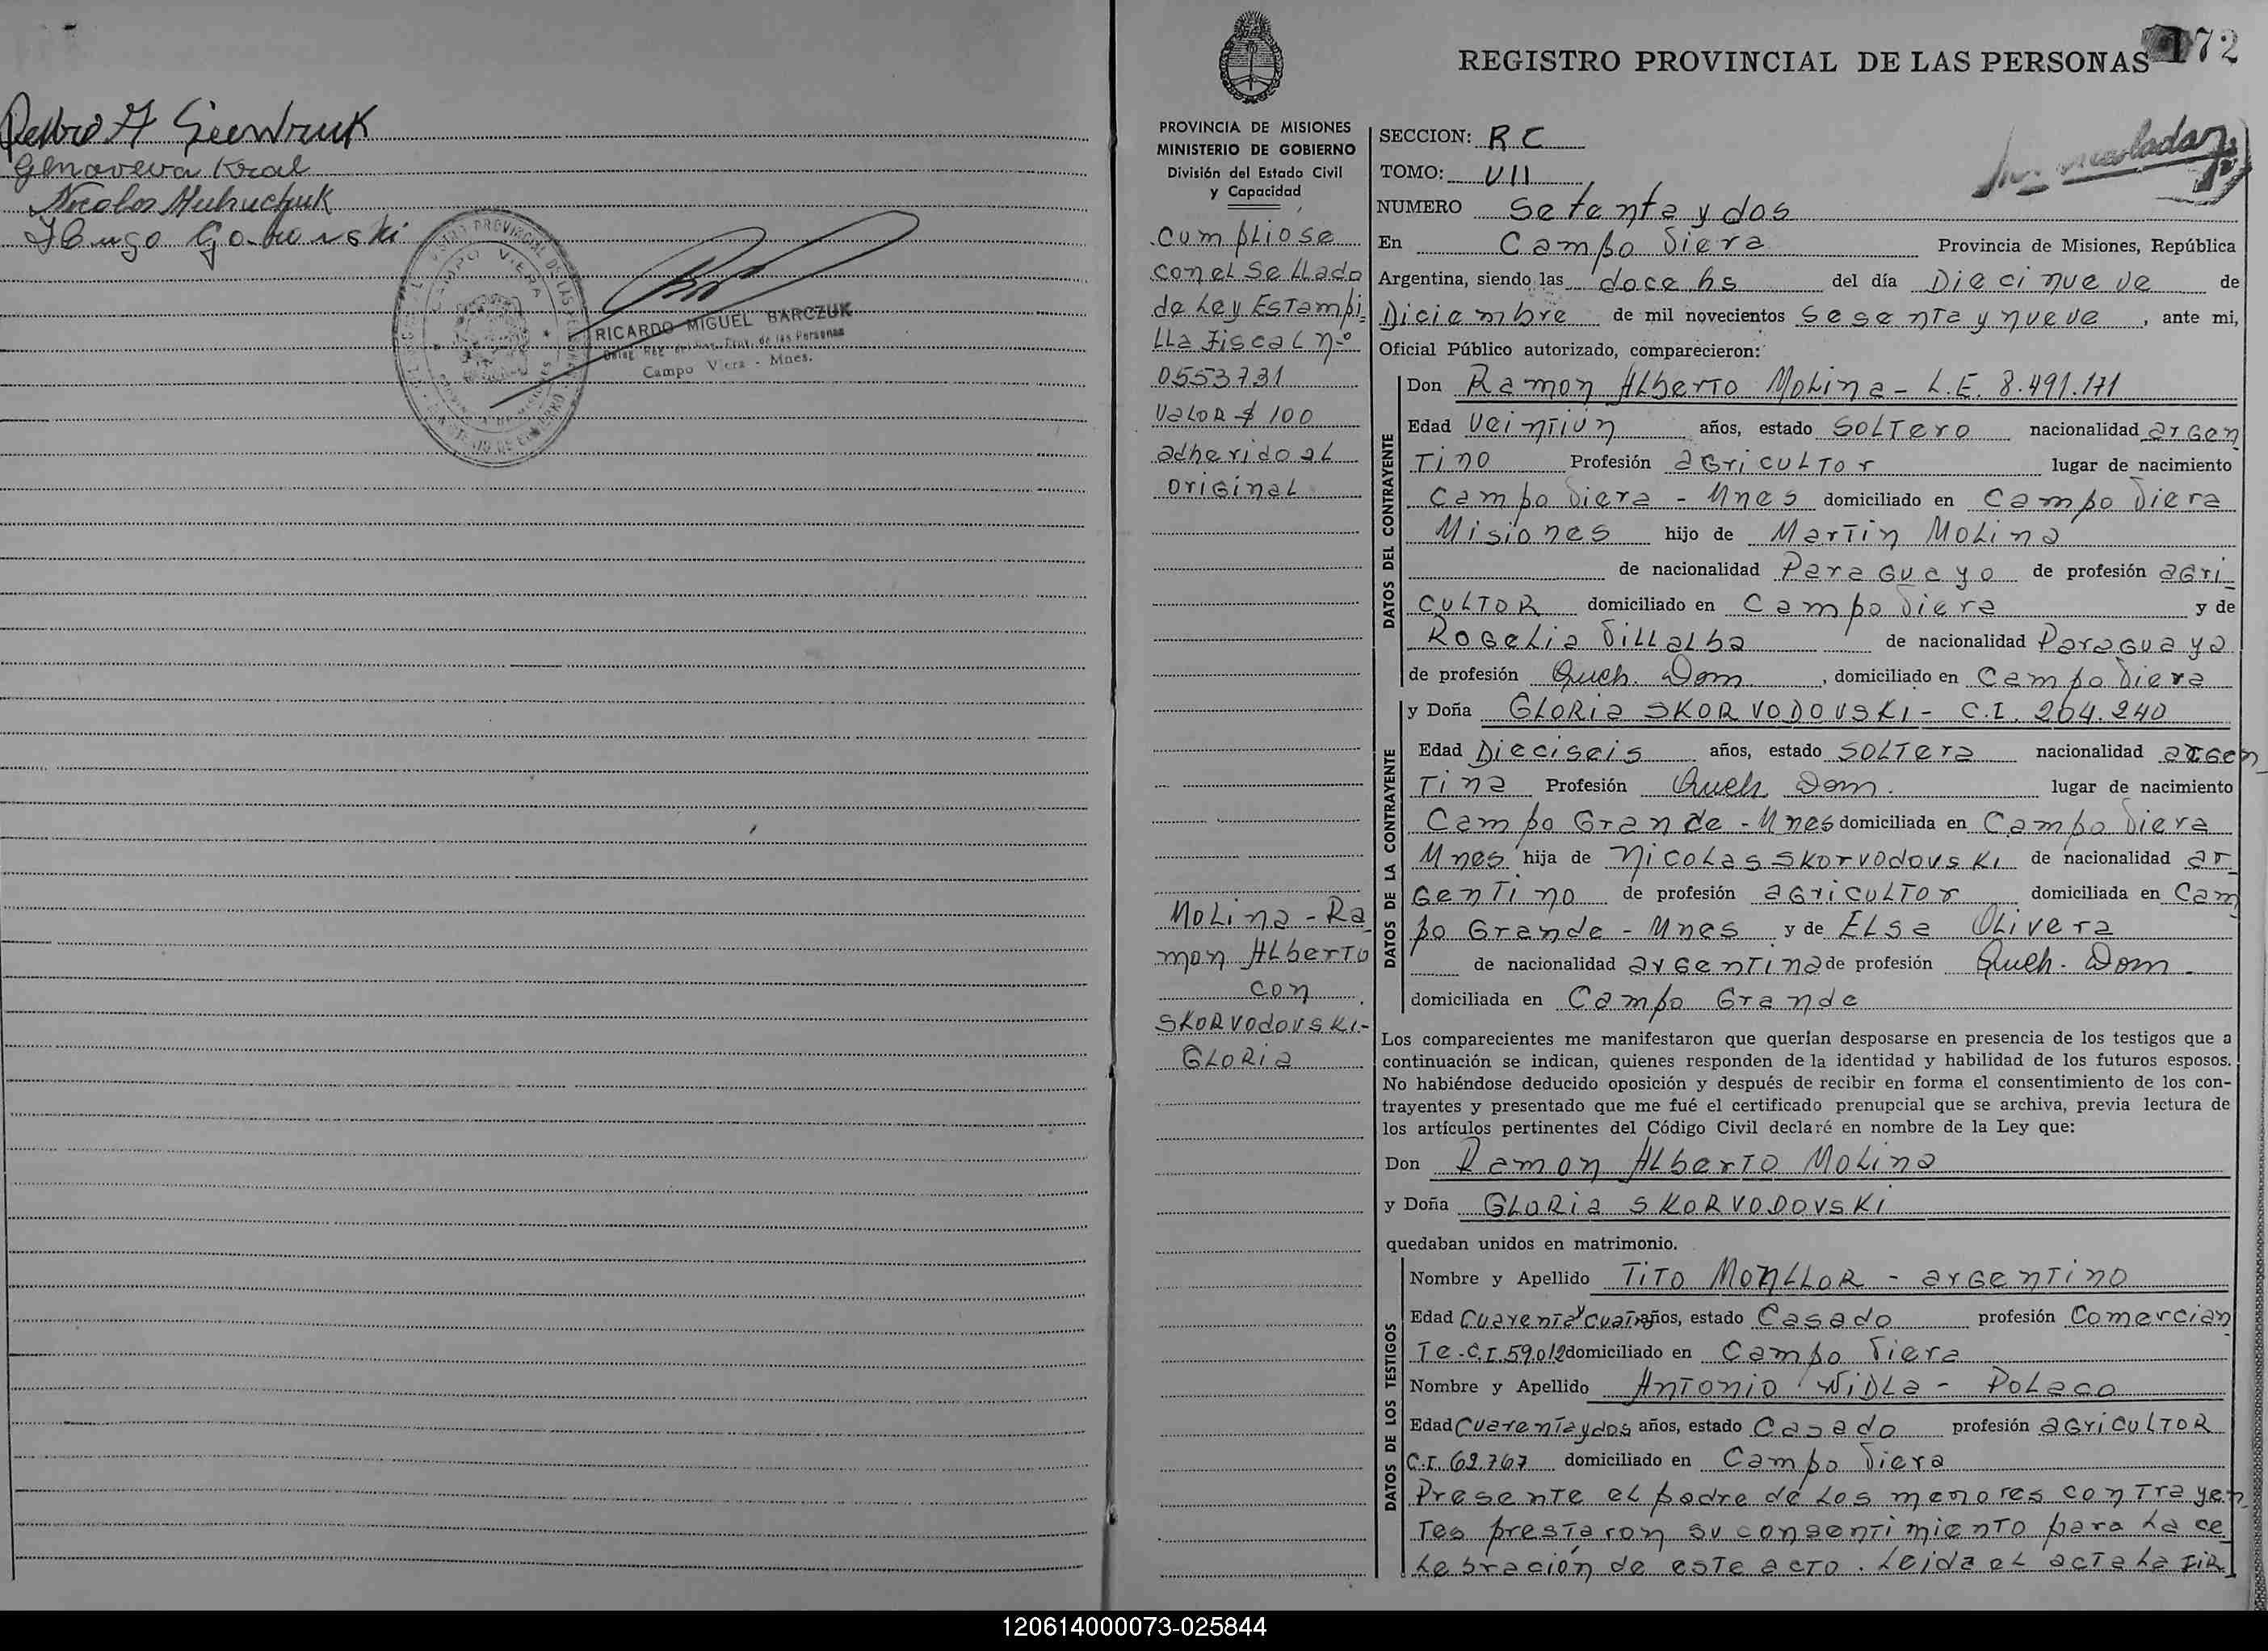 Pedro A Siewruk
Genoveva Kral
Nicolas Muhuchuk
Hugo Gorowski
CAMPO VIERA
RICARDO MIGUEL BARCZUK
Campo Viera - Mnes.
172
REGISTRO PROVINCIAL DE LAS PERSONAS
PROVINCIA DE MISIONES
MINISTERIO DE GOBIERNO
División del Estado Civil
y Capacidad
Cumpliose
con el Sellado
de Ley Estampi=
lla Fiscal nº
0553731
Valor $ 100
adherido al
original
Molina - Ra
mon Alberto
con
SKORVodovski-
GLORia
SECCION: R C
TOMO: VII
NUMERO Setenta y dos
En Campo Viera Provincia de Misiones, República
Argentina, siendo las doce hs del día Diecinueve de
Diciembre de mil novecientos Sesenta y nueve, ante mi,
Oficial Público autorizado, comparecieron:
DATOS DEL CONTRAYENTE
Don Ramon Alberto Molina - L.E. 8.491.171
Edad Veintiun años, estado Soltero nacionalidad argen
tino Profesión agricultor lugar de nacimiento
Campo Viera - Mnes domiciliado en Campo Viera
Misiones hijo de Martin Molina
de nacionalidad Paraguayo de profesión agri-
cultor domiciliado en Campo Viera y de
Rogelia Villalba de nacionalidad Paraguaya
de profesión Queh. Dom, domiciliado en Campo Viera
DATOS DE LA CONTRAYENTE
y Doña GLORia SKORVODOVSKI - C.I. 264.240
Edad Dieciseis años, estado Soltera nacionalidad argen-
tina Profesión Queh Dom. lugar de nacimiento
Campo Grande - Mnes domiciliada en Campo Viera
Mnes hija de Nicolas Skorvodovski de nacionalidad ar
gentino de profesión agricultor domiciliada en Cam
po Grande - Mnes y de Elsa Olivera
de nacionalidad argentina de profesión Queh. Dom.
domiciliada en Campo Grande
Los comparecientes me manifestaron que querían desposarse en presencia de los testigos que a
continuación se indican, quienes responden de la identidad y habilidad de los futuros esposos.
No habiéndose deducido oposición y después de recibir en forma el consentimiento de los con-
trayentes y presentado que me fué el certificado prenupcial que se archiva, previa lectura de
los artículos pertinentes del Código Civil declaré en nombre de la Ley que:
Don Ramon Alberto Molina
y Doña GLORia SKORVODOVSKI
quedaban unidos en matrimonio.
DATOS DE LOS TESTIGOS
Nombre y Apellido Tito MONLLOR - argentino
Edad Cuarenta y cuatro años, estado Casado profesión Comercian
te - C.I. 59.012 domiciliado en Campo Viera
Nombre y Apellido Antonio Widla - Polaco
Edad Cuarenta y dos años, estado Casado profesión agricultor
C.I. 62.767 domiciliado en Campo Viera
Presente el padre de los menores contrayen
tes prestaron su consentimiento para la ce
lebración de este acto. Leida el acta la fir
120614000073-025844